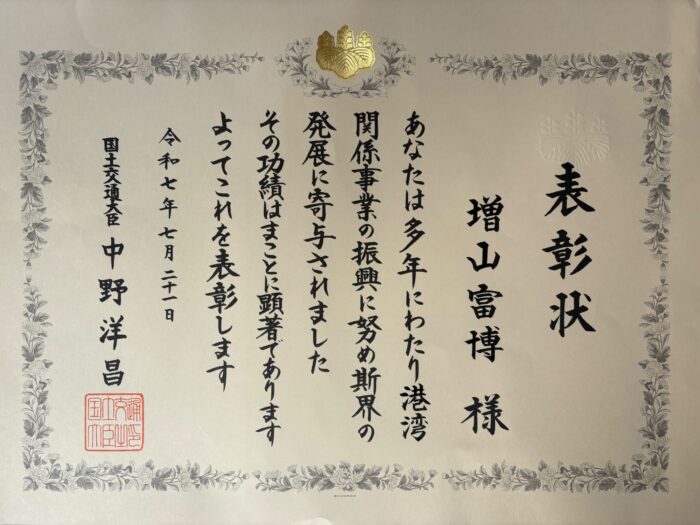 表彰状
増山富博 様
あなたは多年にわたり港湾
関係事業の振興に努め斯界の
発展に寄与されました
その功績はまことに顕著であります
よってこれを表彰します
令和七年七月二十一日
国土交通大臣 中野洋昌